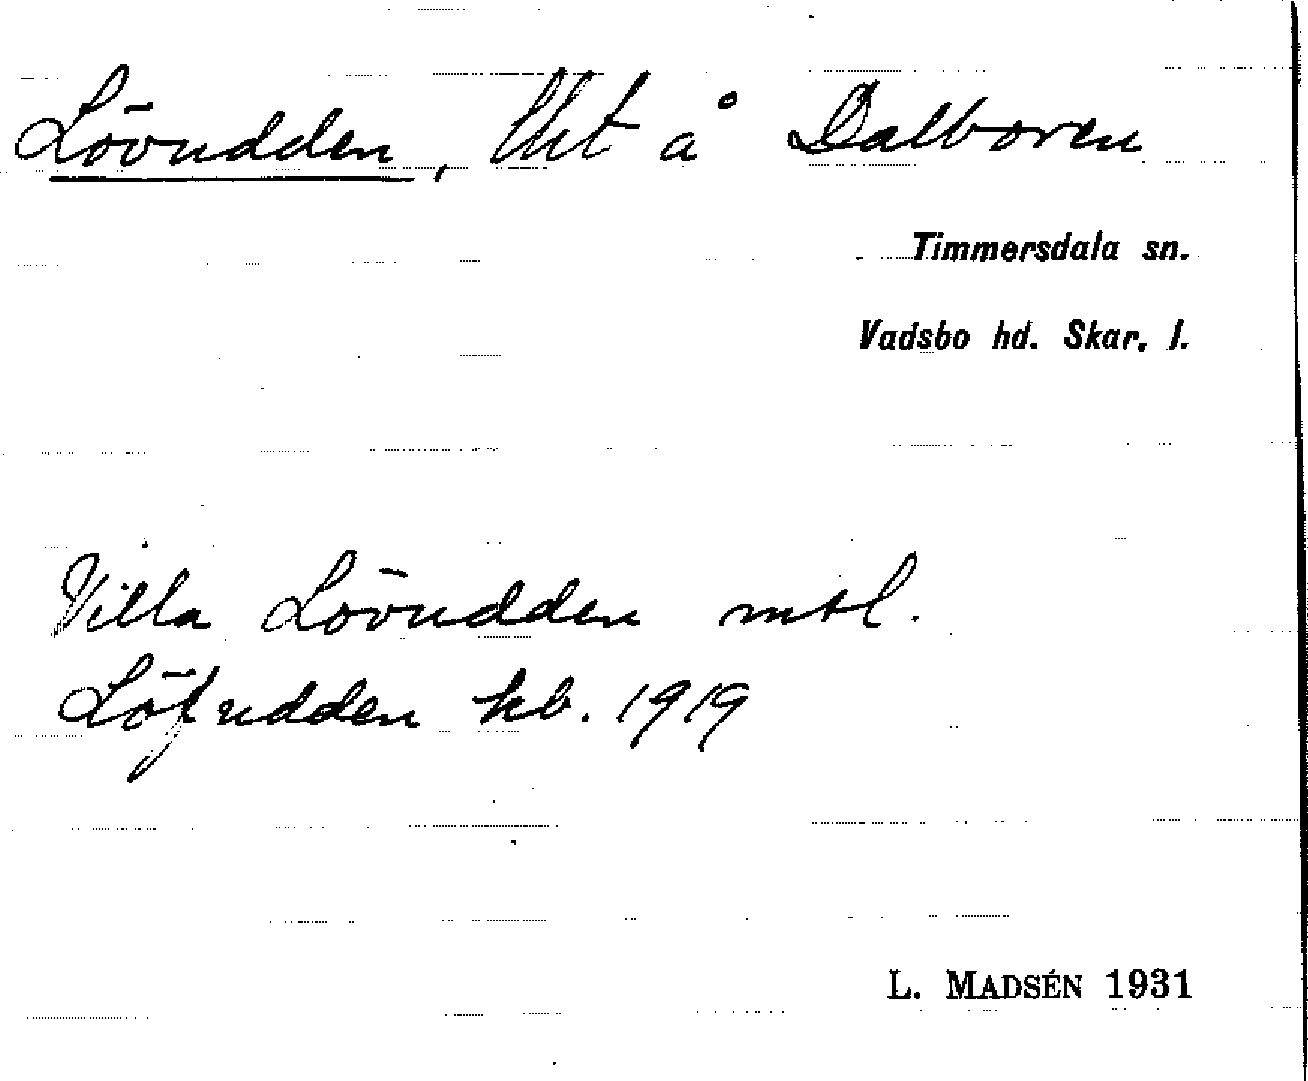 Lövudden, lht å Dalboren
Timmersdala sn.
Vadsbo hd. Skar. l.
Villa Lövudden mtl.
Löfudden kb. 1919
L. MADSÉN 1931